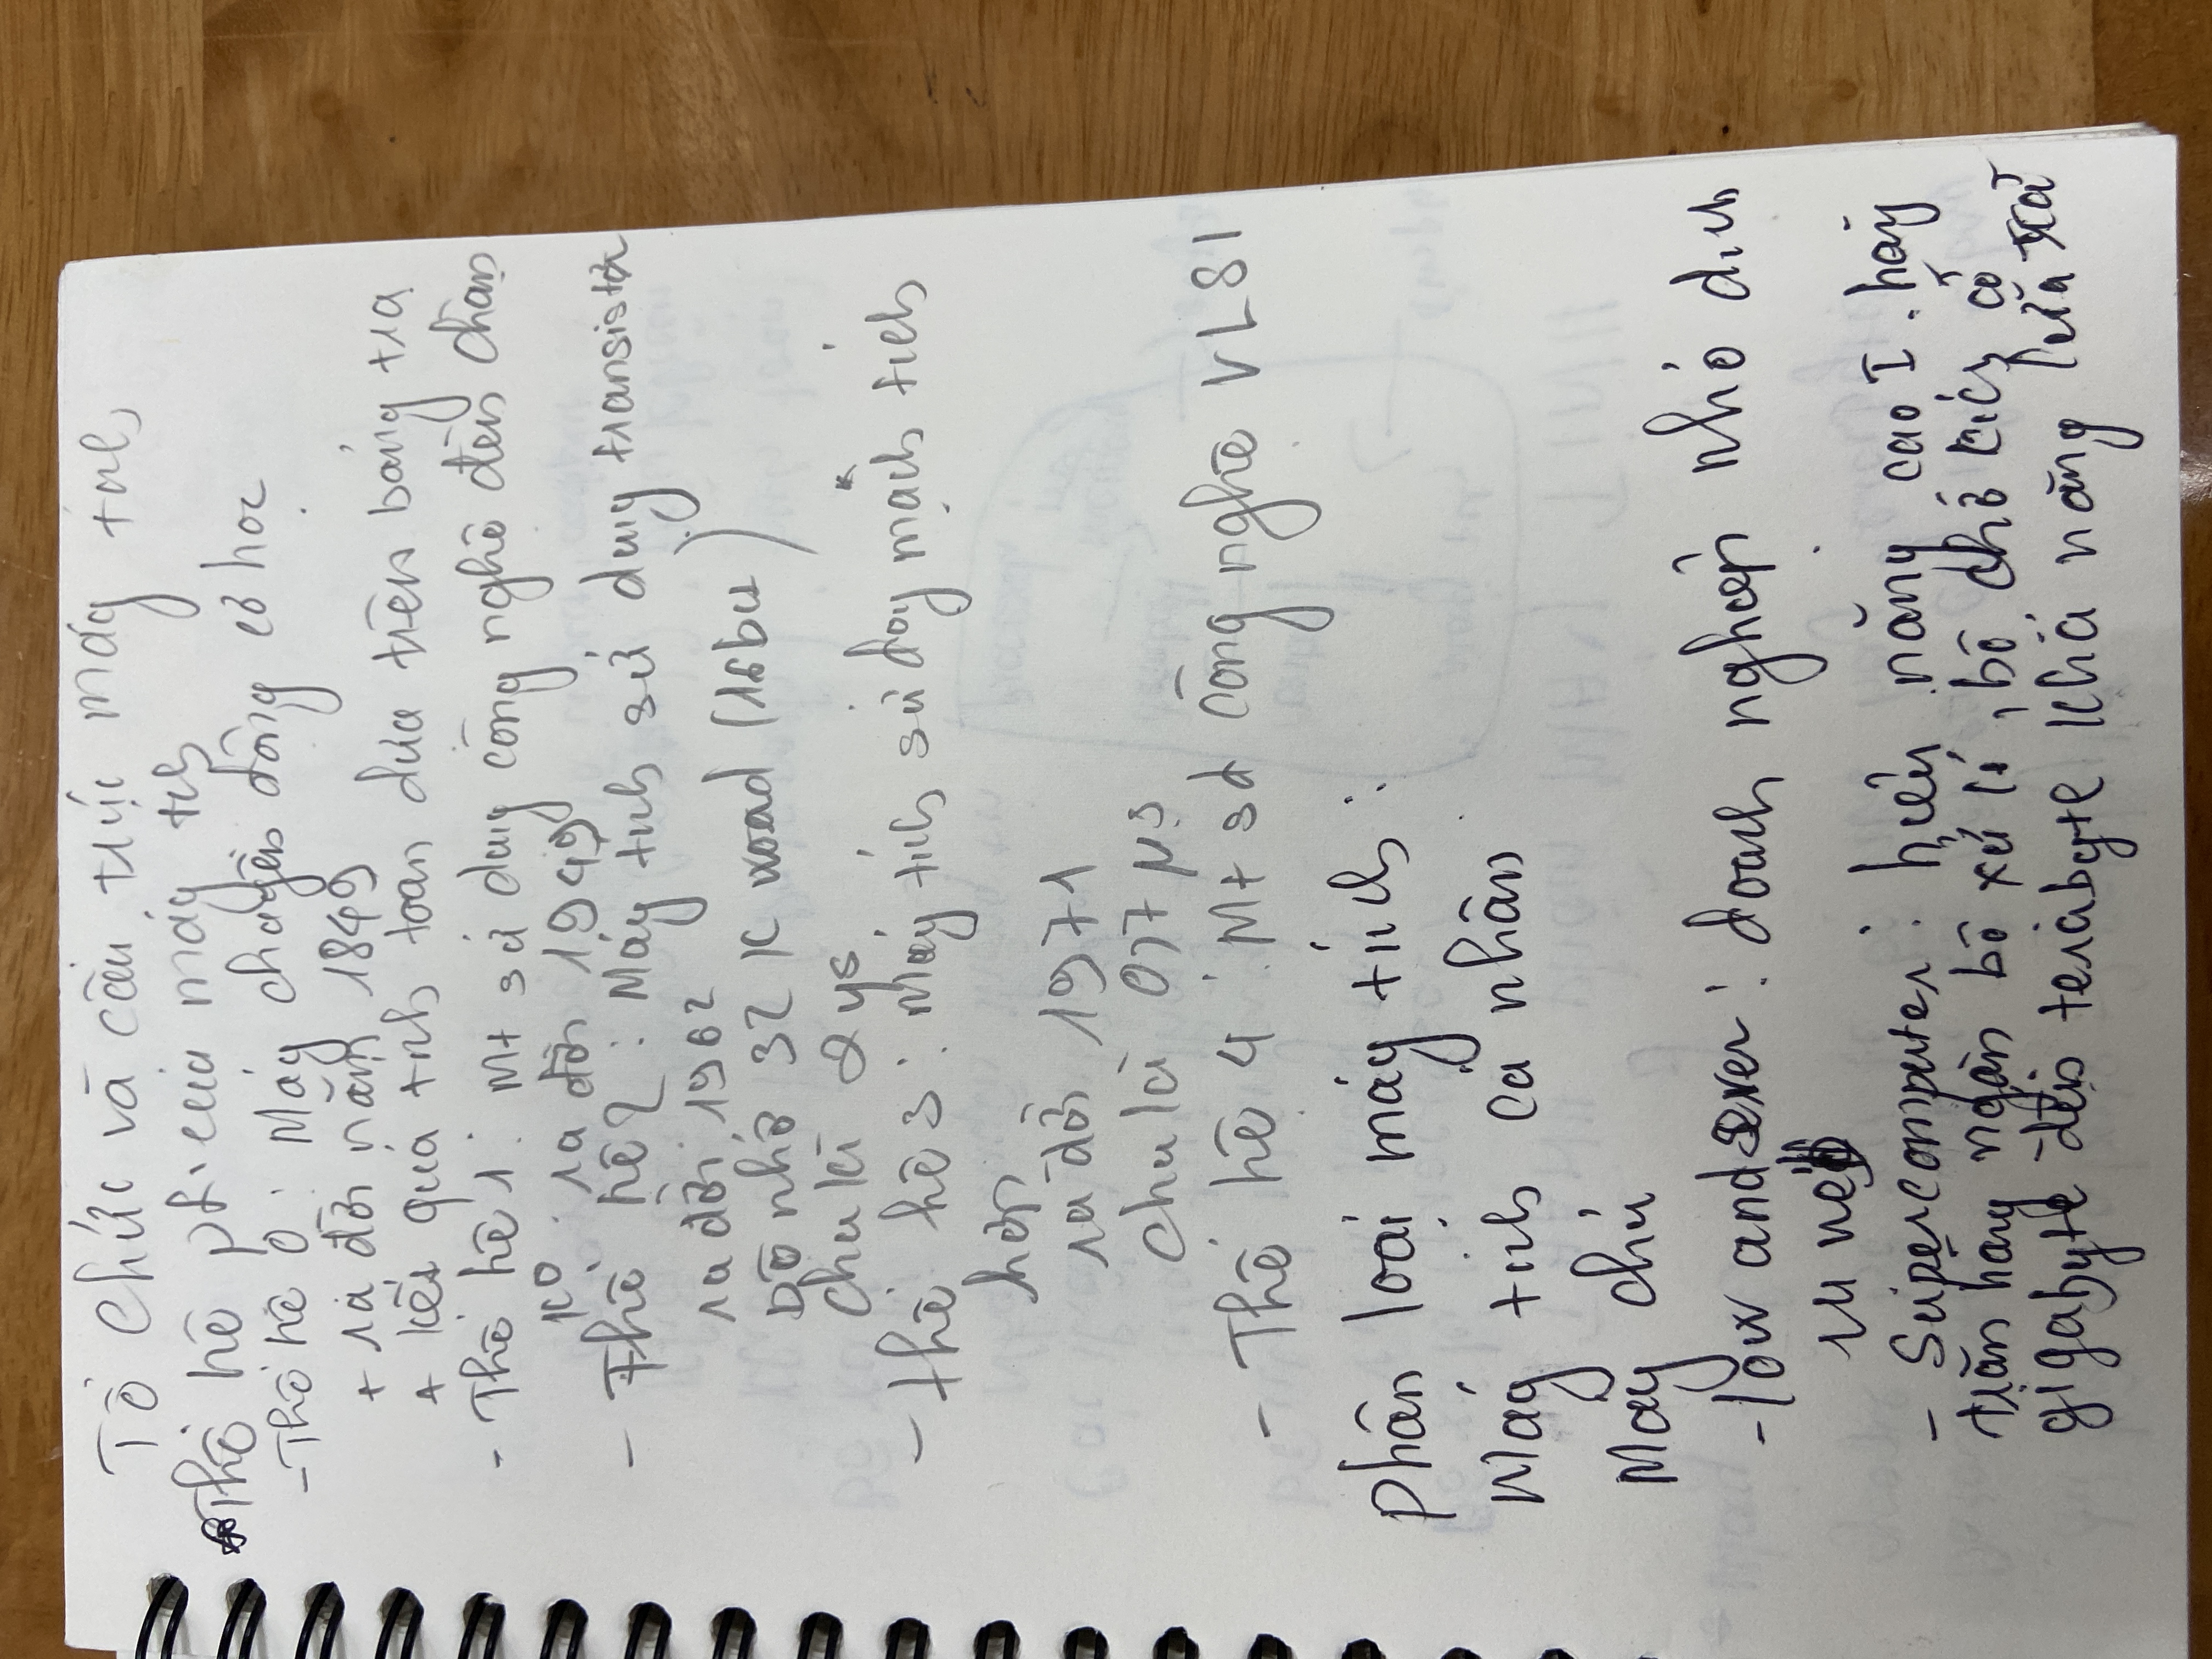 Tổ chức và cấu trúc máy tính
Thế hệ pt của máy tính
- Thế hệ 0: Máy chuyển động cơ học
+ ra đời năm 1849
+ kết quả tính toán dựa trên bảng tra
- Thế hệ 1: Mt sử dụng công nghệ đèn chân
ko ra đời 1949
- Thế hệ 2: Máy tính sử dụng transistor
ra đời 1962
Bộ nhớ 32 K woad (16 bit)
chu kì
- Thế hệ 3: Máy tính sử dụng mạch tích
hợp
ra đời 1971
chu kì 0,7 µs
- Thế hệ 4: Mt sd công nghệ VLSI
Phân loại máy tính:
Máy tính cá nhân
Máy chủ
- low and server: doanh nghiệp nhỏ dịch
- Supercomputer: hiệu năng cao I. hàng
ngàn bộ xử lí, bộ nhớ
gigabyte đến terabyte khả năng lưu trữ